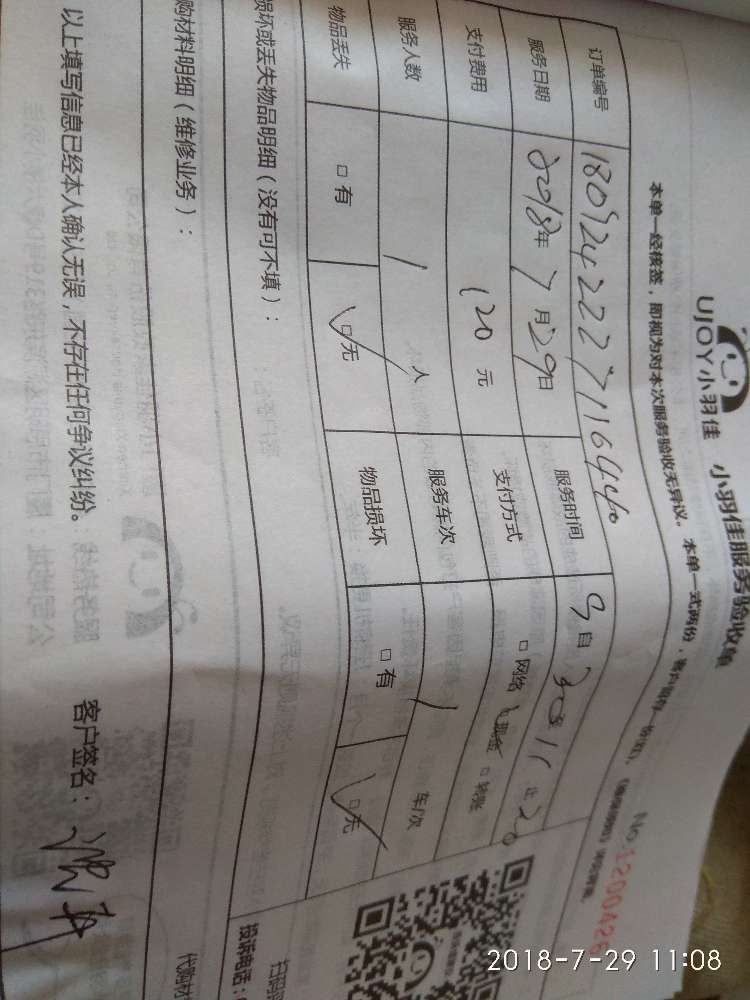 UJOY小羽佳 小羽佳服务验收单
No:1200426
本单一经核签，即视为对本次服务验收无异议。本单一式两份，
订单编号 180724222771164440
服务日期 2018年7月29日 服务时间 9自30至11止20
支付费用 120元 支付方式 □网络 现金 □转账
服务人数 1人 服务车次 1 车/次
物品丢失 □有 □无 物品损坏 □有 □无
损坏或丢失物品明细（没有可不填）：
扫码
投诉电话：
购材料明细（维修业务）：
代购材
以上填写信息已经本人确认无误，不存在任何争议纠纷。 客户签名：
2018-7-29 11:08